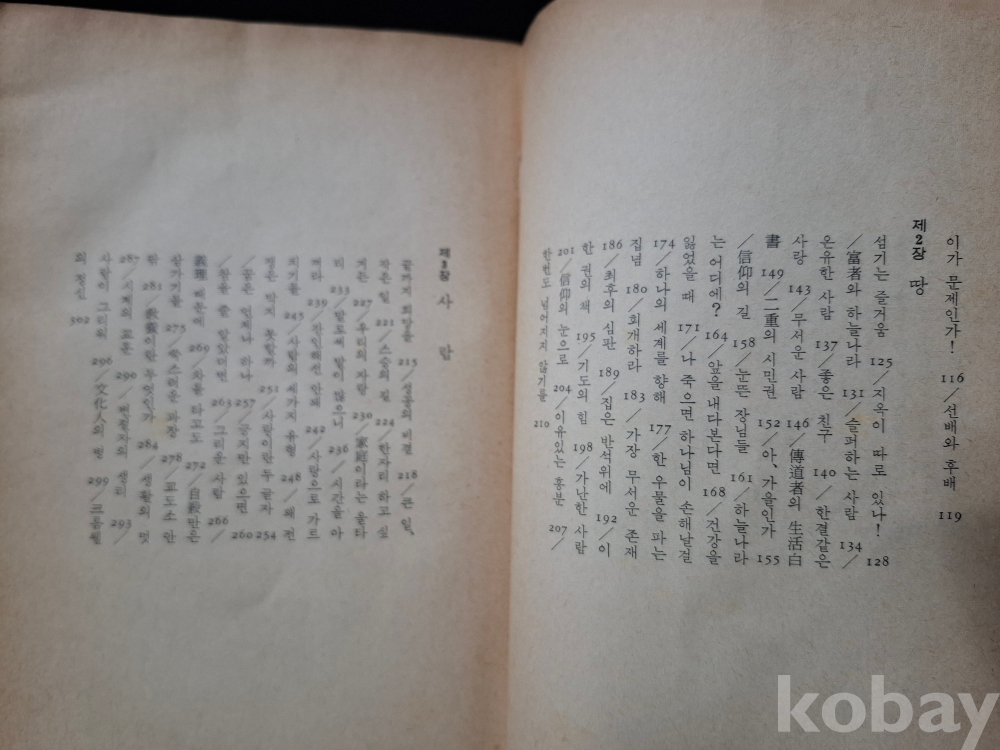 이가 문제인가! 116/선배와 후배 119
제2장 땅
섬기는 즐거움 125/지옥이 따로 있나! 128
/富者와 하늘나라 131/슬퍼하는 사람 134/
온유한 사람 137/좋은 친구 140/한결같은
사랑 143/무서운 사람 146/傳道者의 生活白
書 149/二重의 시민권 152/아, 가을인가 155
/信仰의 길 158/눈뜬 장님들 161/하늘나라
는 어디에? 164/앞을 내다본다면 168/건강을
잃었을 때 171/나 죽으면 하나님이 손해날걸
174/하나의 세계를 향해 177/한 우물을 파는
집념 180/회개하라 183/가장 무서운 존재
186/최후의 심판 189/집은 반석위에 192/이
한 권의 책 195/기도의 힘 198/가난한 사람
201/信仰의 눈으로 204/이유있는 흥분 207/
한번도 넘어지지 않기를 210
제3장 사람
215/성공의 비결 218/큰 일,
작은 일 221/스승의 길 224/한자리 하고 싶
거든 227/우리의 자랑 230/家庭이라는 울타
리 233/발로써 밟이 많으니 236/시간을 아
껴라 239/잔인해선 안돼 242/사랑으로 가르
치기를 245/사랑의 세가지 유형 248/왜 전
쟁은 막지 못할까 251/사랑이란 두 글자 254
/꿈은 언제나 하나 257/싫지만 있으면 260
/했을 줄 알았더면 263/그리운 사람 266/
義理 때문에 269/차를 타고도 272/自殺만은
삼가기를 275/욕스러운 과장 278/교도소 안
팎 281/敎養이란 무엇인가 284/生活의 멋
287/시계의 교훈 290/편집자의 생리 293/
사랑이 그리워 296/文化人의 병 299/
의 정신 302
kobay